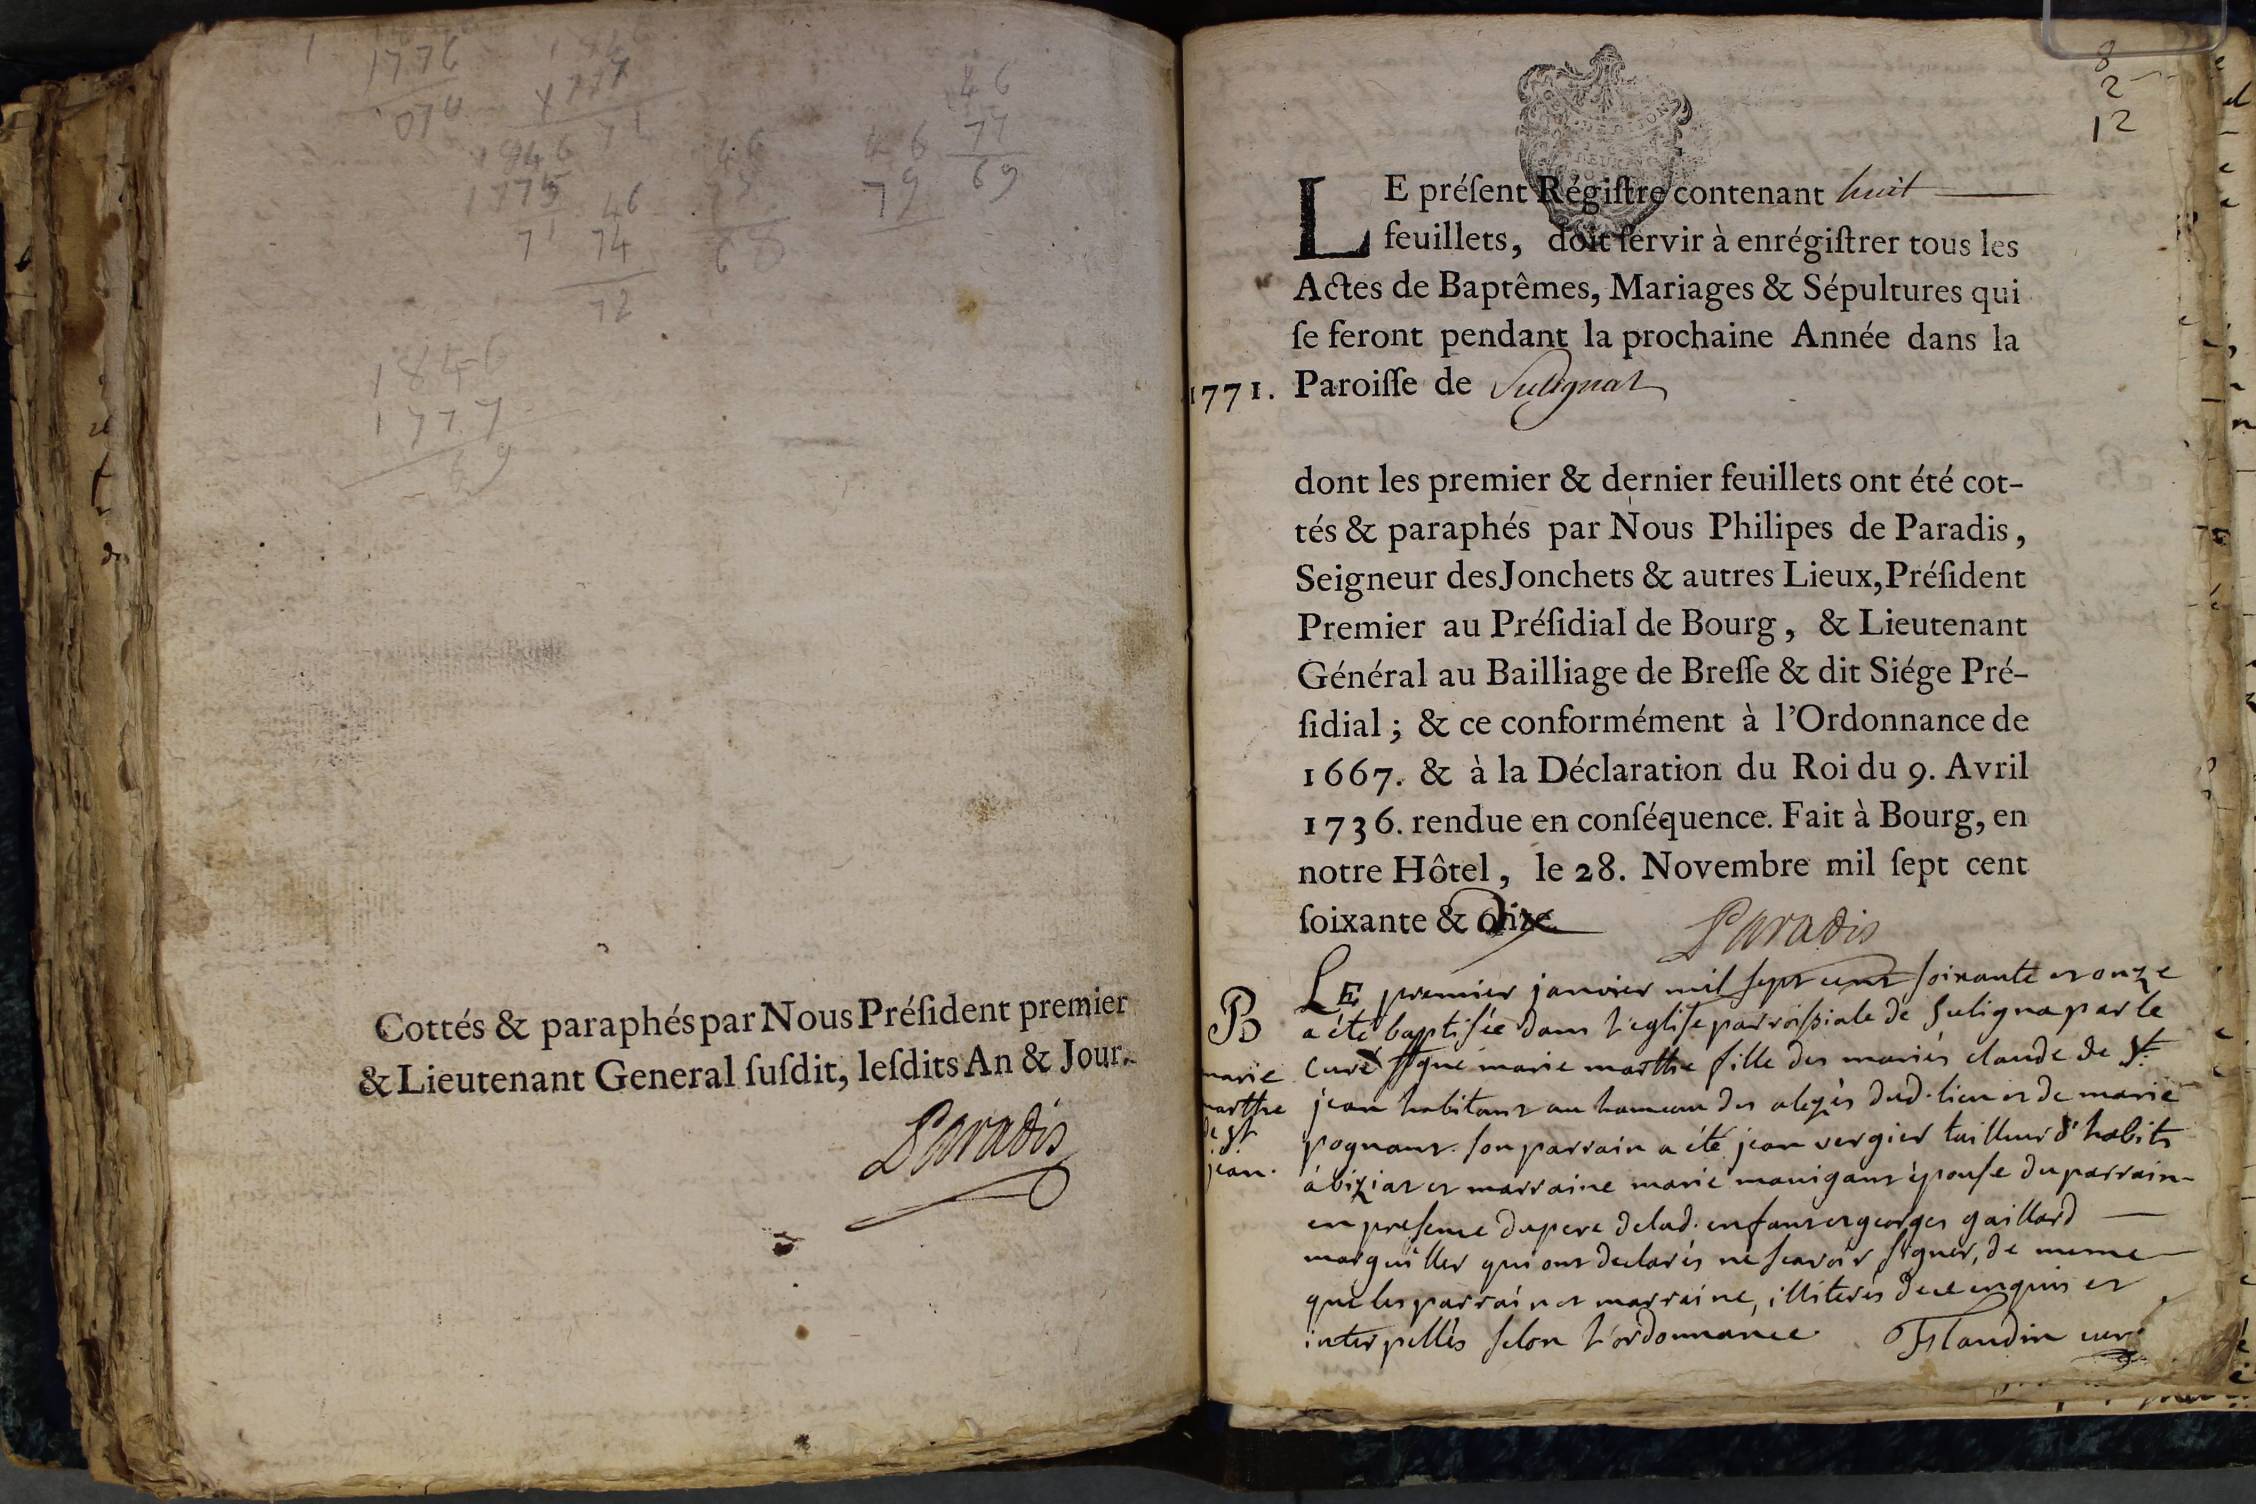 1776
070
1777
71
1846
1775
71
46
74
72
46
68
46
79
46
77
69
1846
1777
69
Cottés & paraphés par Nous Préſident premier
& Lieutenant General ſuſdit, leſdits An & Jour.
Paradis
8
2
12
LE préſent Régiſtre contenant huit
feuillets, doit ſervir à enrégiſtrer tous les
Actes de Baptêmes, Mariages & Sépultures qui
ſe feront pendant la prochaine Année dans la
1771. Paroiſſe de Sulignat
dont les premier & dernier feuillets ont été cot-
tés & paraphés par Nous Philipes de Paradis,
Seigneur des Jonchets & autres Lieux, Préſident
Premier au Préſidial de Bourg, & Lieutenant
Général au Bailliage de Breſſe & dit Siége Pré-
ſidial; & ce conformément à l'Ordonnance de
1667. & à la Déclaration du Roi du 9. Avril
1736. rendue en conſéquence. Fait à Bourg, en
notre Hôtel, le 28. Novembre mil ſept cent
ſoixante & dix
Paradis
B
marie
marthe
de st
jean.
LE premier janvier mil sept cent soixante et onze
a été baptisée dans l'eglise parroissiale de Suligna par le
curé ssigné marie marthe fille des mariés claude de st.
jean habitant au hameau des alezès dud. lieu et de marie
pognant. son parrain a été jean vergier tailleur d'habits
à biziat et marraine marie manigant épouse du parrain
en presence du pere de lad. enfant et georges gaillard
marguiller qui ont declarés ne scavoir signer, de meme
que les parrain et marraine, illiterés de ce enquis et
interpellés selon l'ordonnance. Flandin curé